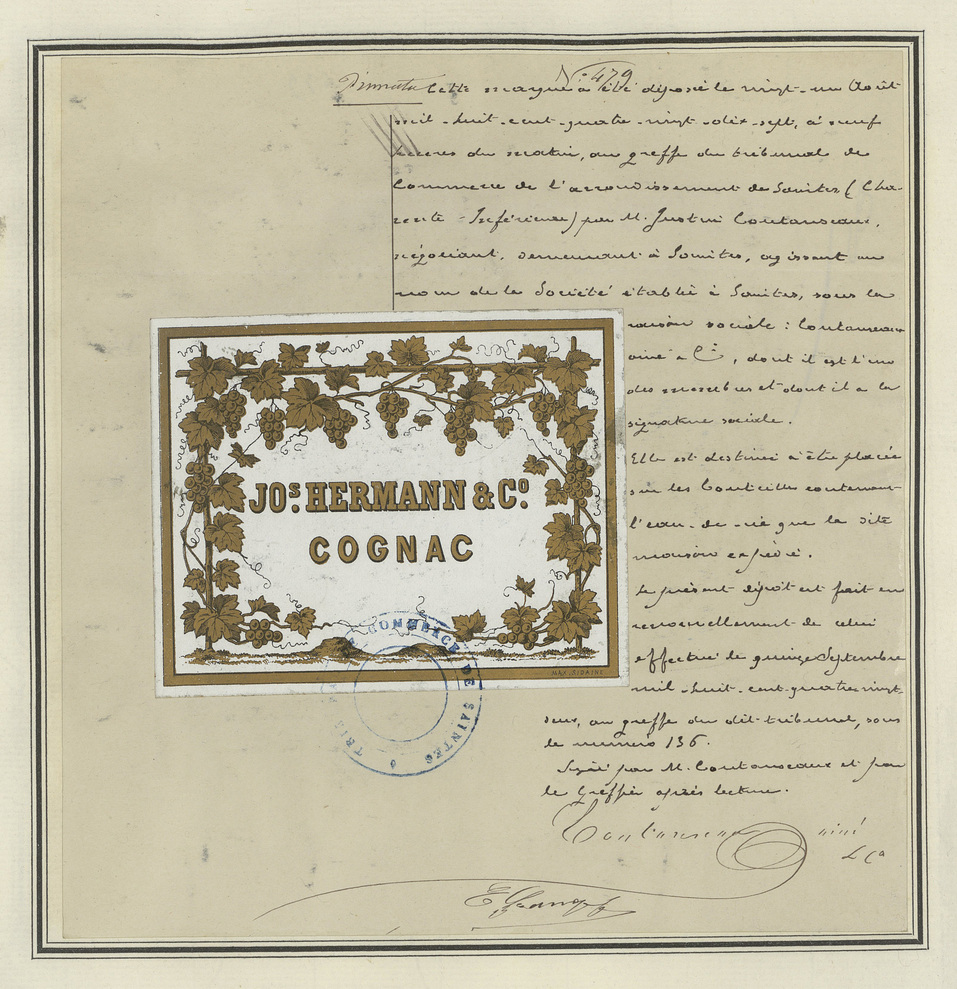 N° 479
Cette marque a été déposé le vingt-un Août
mil-huit-cent-quatre-vingt-dix-sept, à neuf
heures du matin, au greffe du tribunal de
Commerce de l'arrondissement de Saintes (Cha-
rente-Inférieure) par M. Justin Coutanseaux,
négociant, demeurant à Saintes, agissant au
nom de la Société établie à Saintes, sous la
raison sociale : Coutanseaux
ainé & Cie, dont il est l'un
des membres et dont il a la
signature sociale.
Elle est destinée à être placée
sur les bouteilles contenant
l'eau-de-vie que la dite
maison expédie.
Le présent dépôt est fait en
renouvellement de celui
effectué le quinze Septembre
mil-huit-cent-quatre-vingt-
deux, au greffe du dit tribunal, sous
le numéro 136.
Signé par M. Coutanseaux et par
le Greffier après lecture.
Coutanseaux ainé
& Co
JOS. HERMANN & CO.
COGNAC
COMMERCE DE SAINTES
TRIB